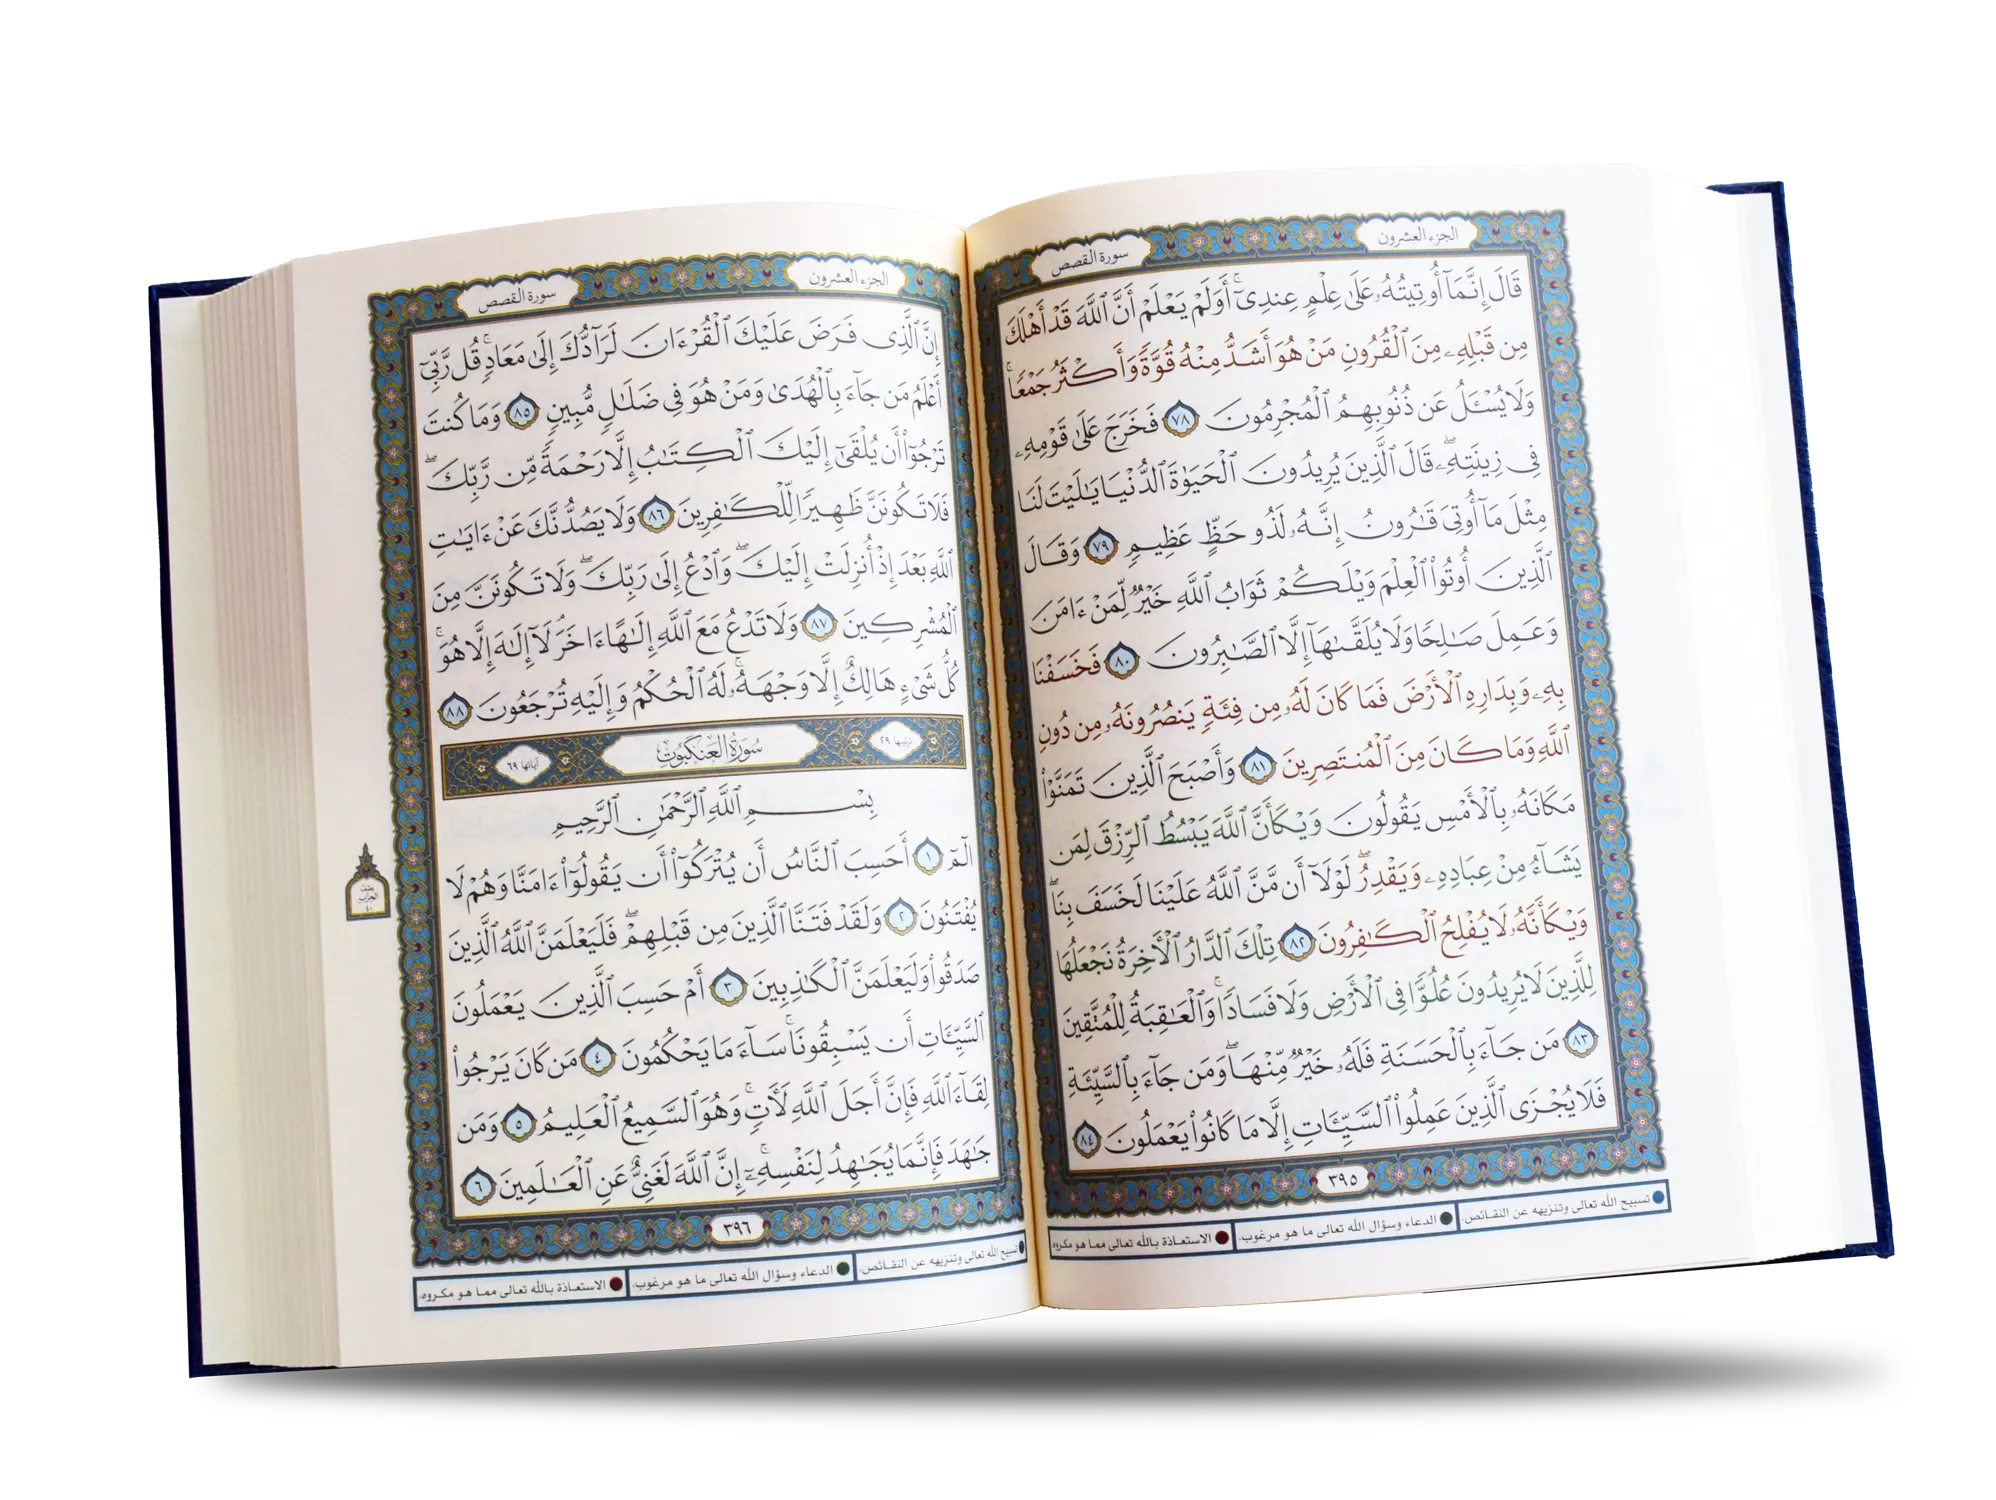 الجزء العشرون
سورة القصص
قَالَ إِنَّمَآ أُوتِيتُهُۥ عَلَىٰ عِلْمٍ عِندِىٓۚ أَوَلَمْ يَعْلَمْ أَنَّ ٱللَّهَ قَدْ أَهْلَكَ
مِن قَبْلِهِۦ مِنَ ٱلْقُرُونِ مَنْ هُوَ أَشَدُّ مِنْهُ قُوَّةً وَأَكْثَرُ جَمْعًاۚ
وَلَا يُسْـَٔلُ عَن ذُنُوبِهِمُ ٱلْمُجْرِمُونَ ٧٨ فَخَرَجَ عَلَىٰ قَوْمِهِۦ
فِى زِينَتِهِۦۖ قَالَ ٱلَّذِينَ يُرِيدُونَ ٱلْحَيَوٰةَ ٱلدُّنْيَا يَـٰلَيْتَ لَنَا
مِثْلَ مَآ أُوتِىَ قَـٰرُونُ إِنَّهُۥ لَذُو حَظٍّ عَظِيمٍ ٧٩ وَقَالَ
ٱلَّذِينَ أُوتُوا۟ ٱلْعِلْمَ وَيْلَكُمْ ثَوَابُ ٱللَّهِ خَيْرٌ لِّمَنْ ءَامَنَ
وَعَمِلَ صَـٰلِحًا وَلَا يُلَقَّىٰهَآ إِلَّا ٱلصَّـٰبِرُونَ ٨٠ فَخَسَفْنَا
بِهِۦ وَبِدَارِهِ ٱلْأَرْضَ فَمَا كَانَ لَهُۥ مِن فِئَةٍ يَنصُرُونَهُۥ مِن دُونِ
ٱللَّهِ وَمَا كَانَ مِنَ ٱلْمُنتَصِرِينَ ٨١ وَأَصْبَحَ ٱلَّذِينَ تَمَنَّوْا۟
مَكَانَهُۥ بِٱلْأَمْسِ يَقُولُونَ وَيْكَأَنَّ ٱللَّهَ يَبْسُطُ ٱلرِّزْقَ لِمَن
يَشَآءُ مِنْ عِبَادِهِۦ وَيَقْدِرُۖ لَوْلَآ أَن مَّنَّ ٱللَّهُ عَلَيْنَا لَخَسَفَ بِنَاۖ
وَيْكَأَنَّهُۥ لَا يُفْلِحُ ٱلْكَـٰفِرُونَ ٨٢ تِلْكَ ٱلدَّارُ ٱلْأَخِرَةُ نَجْعَلُهَا
لِلَّذِينَ لَا يُرِيدُونَ عُلُوًّا فِى ٱلْأَرْضِ وَلَا فَسَادًاۚ وَٱلْعَـٰقِبَةُ لِلْمُتَّقِينَ
٨٣ مَن جَآءَ بِٱلْحَسَنَةِ فَلَهُۥ خَيْرٌ مِّنْهَاۖ وَمَن جَآءَ بِٱلسَّيِّئَةِ
فَلَا يُجْزَى ٱلَّذِينَ عَمِلُوا۟ ٱلسَّيِّـَٔاتِ إِلَّا مَا كَانُوا۟ يَعْمَلُونَ ٨٤
٣٩٥
تسبيح الله تعالى وتنزيهه عن النقائص.
الدعاء وسؤال الله تعالى ما هو مرغوب.
الاستعاذة بالله تعالى مما هو مكروه.
الجزء العشرون
سورة القصص
إِنَّ ٱلَّذِى فَرَضَ عَلَيْكَ ٱلْقُرْءَانَ لَرَآدُّكَ إِلَىٰ مَعَادٍۚ قُل رَّبِّىٓ
أَعْلَمُ مَن جَآءَ بِٱلْهُدَىٰ وَمَنْ هُوَ فِى ضَلَـٰلٍ مُّبِينٍ ٨٥ وَمَا كُنتَ
تَرْجُوٓا۟ أَن يُلْقَىٰٓ إِلَيْكَ ٱلْكِتَـٰبُ إِلَّا رَحْمَةً مِّن رَّبِّكَۖ
فَلَا تَكُونَنَّ ظَهِيرًا لِّلْكَـٰفِرِينَ ٨٦ وَلَا يَصُدُّنَّكَ عَنْ ءَايَـٰتِ
ٱللَّهِ بَعْدَ إِذْ أُنزِلَتْ إِلَيْكَۖ وَٱدْعُ إِلَىٰ رَبِّكَۖ وَلَا تَكُونَنَّ مِنَ
ٱلْمُشْرِكِينَ ٨٧ وَلَا تَدْعُ مَعَ ٱللَّهِ إِلَـٰهًا ءَاخَرَۘ لَآ إِلَـٰهَ إِلَّا هُوَۚ
كُلُّ شَىْءٍ هَالِكٌ إِلَّا وَجْهَهُۥۚ لَهُ ٱلْحُكْمُ وَإِلَيْهِ تُرْجَعُونَ ٨٨
ترتيبها ٢٩
سُورَةُ العَنكَبُوتِ
آياتها ٦٩
بِسْمِ ٱللَّهِ ٱلرَّحْمَـٰنِ ٱلرَّحِيمِ
الٓمٓ ١ أَحَسِبَ ٱلنَّاسُ أَن يُتْرَكُوٓا۟ أَن يَقُولُوٓا۟ ءَامَنَّا وَهُمْ لَا
يُفْتَنُونَ ٢ وَلَقَدْ فَتَنَّا ٱلَّذِينَ مِن قَبْلِهِمْۖ فَلَيَعْلَمَنَّ ٱللَّهُ ٱلَّذِينَ
صَدَقُوا۟ وَلَيَعْلَمَنَّ ٱلْكَـٰذِبِينَ ٣ أَمْ حَسِبَ ٱلَّذِينَ يَعْمَلُونَ
ٱلسَّيِّـَٔاتِ أَن يَسْبِقُونَاۚ سَآءَ مَا يَحْكُمُونَ ٤ مَن كَانَ يَرْجُوا۟
لِقَآءَ ٱللَّهِ فَإِنَّ أَجَلَ ٱللَّهِ لَأَتٍۚ وَهُوَ ٱلسَّمِيعُ ٱلْعَلِيمُ ٥ وَمَن
جَـٰهَدَ فَإِنَّمَا يُجَـٰهِدُ لِنَفْسِهِۦٓۚ إِنَّ ٱللَّهَ لَغَنِىٌّ عَنِ ٱلْعَـٰلَمِينَ ٦
نصف
الحزب
٤٠
٣٩٦
تسبيح الله تعالى وتنزيهه عن النقائص.
الدعاء وسؤال الله تعالى ما هو مرغوب.
الاستعاذة بالله تعالى مما هو مكروه.